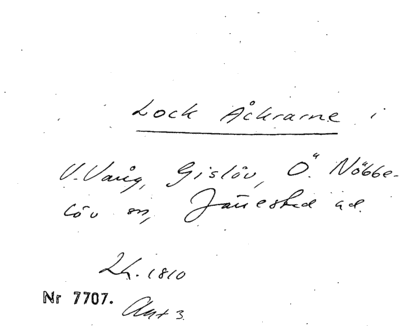 Lock Åkrarne i
V. Vång, Gislöv, Ö. Nöbbe-
löv sn, Järrestad hd.
Lh. 1810
Nr 7707. Akt 3.